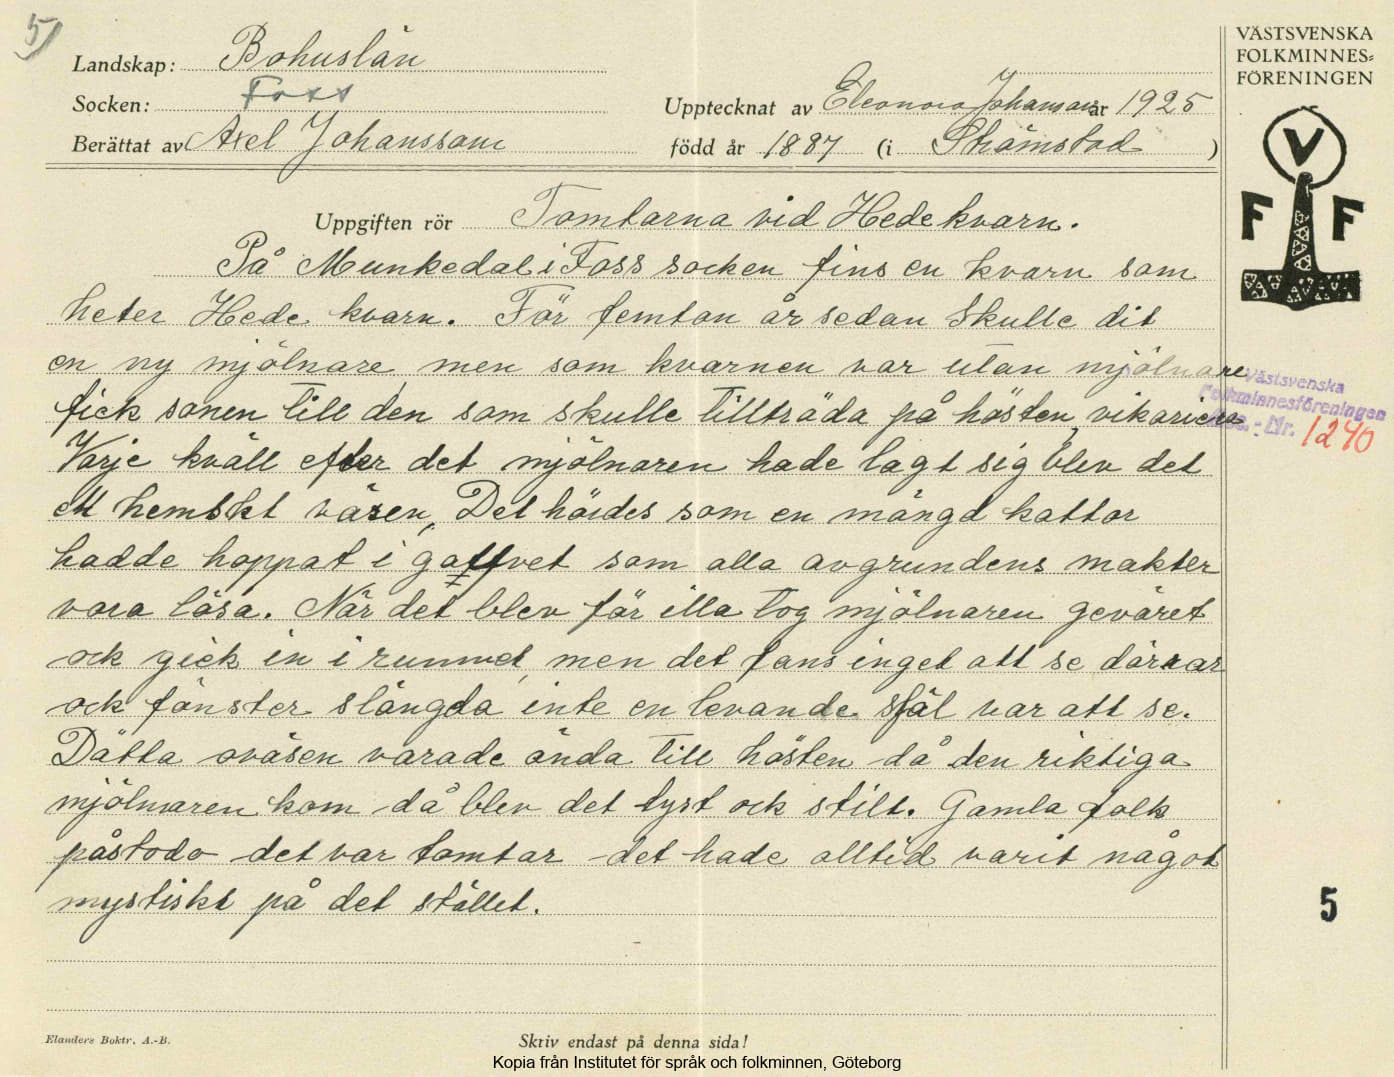 5
Landskap: Bohuslän
Socken: Foss
Berättat av Axel Johansson
Upptecknat av Eleonora Johansson år 1925
född år 1887 (i Strömstad )
VÄSTSVENSKA
FOLKMINNES=
FÖRENINGEN
V
F F
Uppgiften rör Tomtarna vid Hede kvarn.
På Munkedal i Foss socken fins en kvarn som
heter Hede kvarn. För femton år sedan skulle dit
en ny mjölnare men som kvarnen var utan mjölnare
fick sonen till den som skulle tillträda på hösten, vikariera
Varje kväll efter det mjölnaren hade lagt sig blev det
ett hemskt väsen, Det hördes som en mängd kattor
hadde hoppat i golfvet som alla avgrundens makter
vora lösa. När det blev för illa tog mjölnaren geväret
ock gick in i rummet, men det fans inget att se dörrar
ock fönster stängda, inte en levande själ var att se.
Dätta oväsen varade ända till hösten då den riktiga
mjölnaren kom då blev det tyst ock stilt. Gamla folk
påstodo det var tomtar det hade alltid varit något
mystiskt på det stället.
Västsvenska
Folkminnesföreningen
Acc.-Nr. 1240
5
Elanders Boktr. A.-B.
Skriv endast på denna sida!
Kopia från Institutet för språk och folkminnen, Göteborg